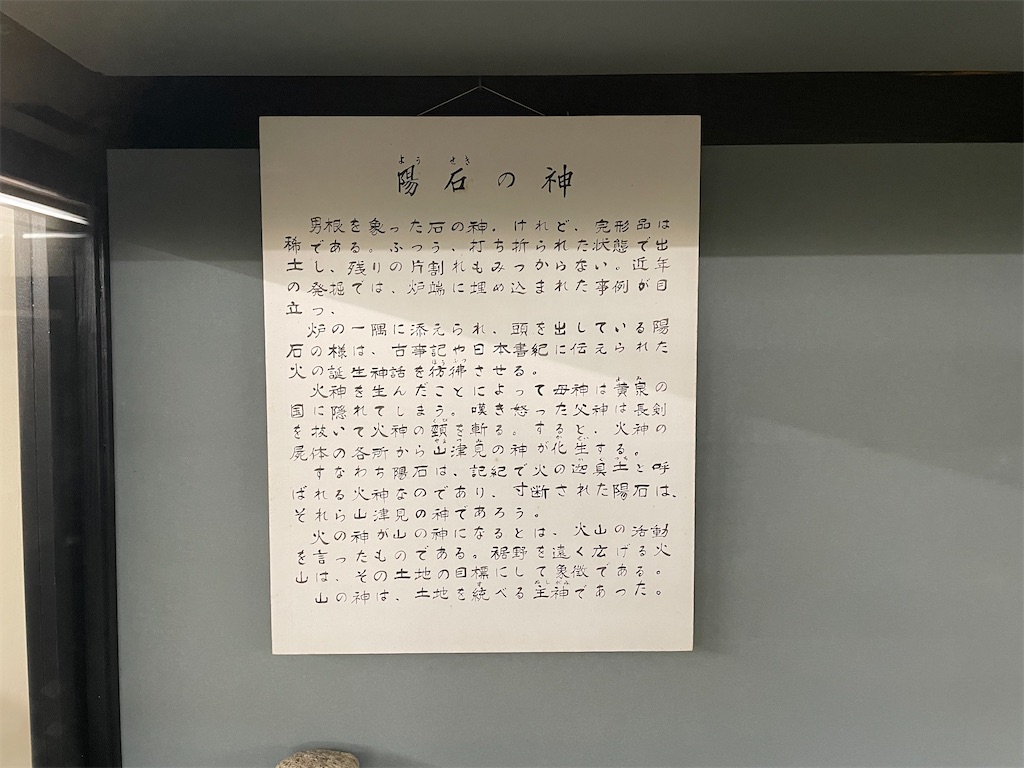 陽石の神
男根を象った石の神．けれど、完形品は
稀である。ふつう、打ち折られた状態で出
土し、残りの片割れもみつからない。近年
の発掘では、炉端に埋め込まれた事例が目
立つ、
炉の一隅に添えられ、頭を出している陽
石の様は、古事記や日本書紀に伝えられた
火の誕生神話を彷彿させる。
火神を生んだことによって母神は黄泉の
国に隠れてしまう。嘆き怒った父神は長剣
を抜いて火神の頸を斬る。すると、火神の
屍体の各所から山津見の神が化生する。
すなわち陽石は、記紀で火の迦具土と呼
ばれる火神なのであり、寸断された陽石は、
それら山津見の神であろう。
火の神が山の神になるとは、火山の活動
を言ったものである。裾野を遠く広げる火
山は、その土地の目標にして象徴である。
山の神は、土地を統べる主神であった。